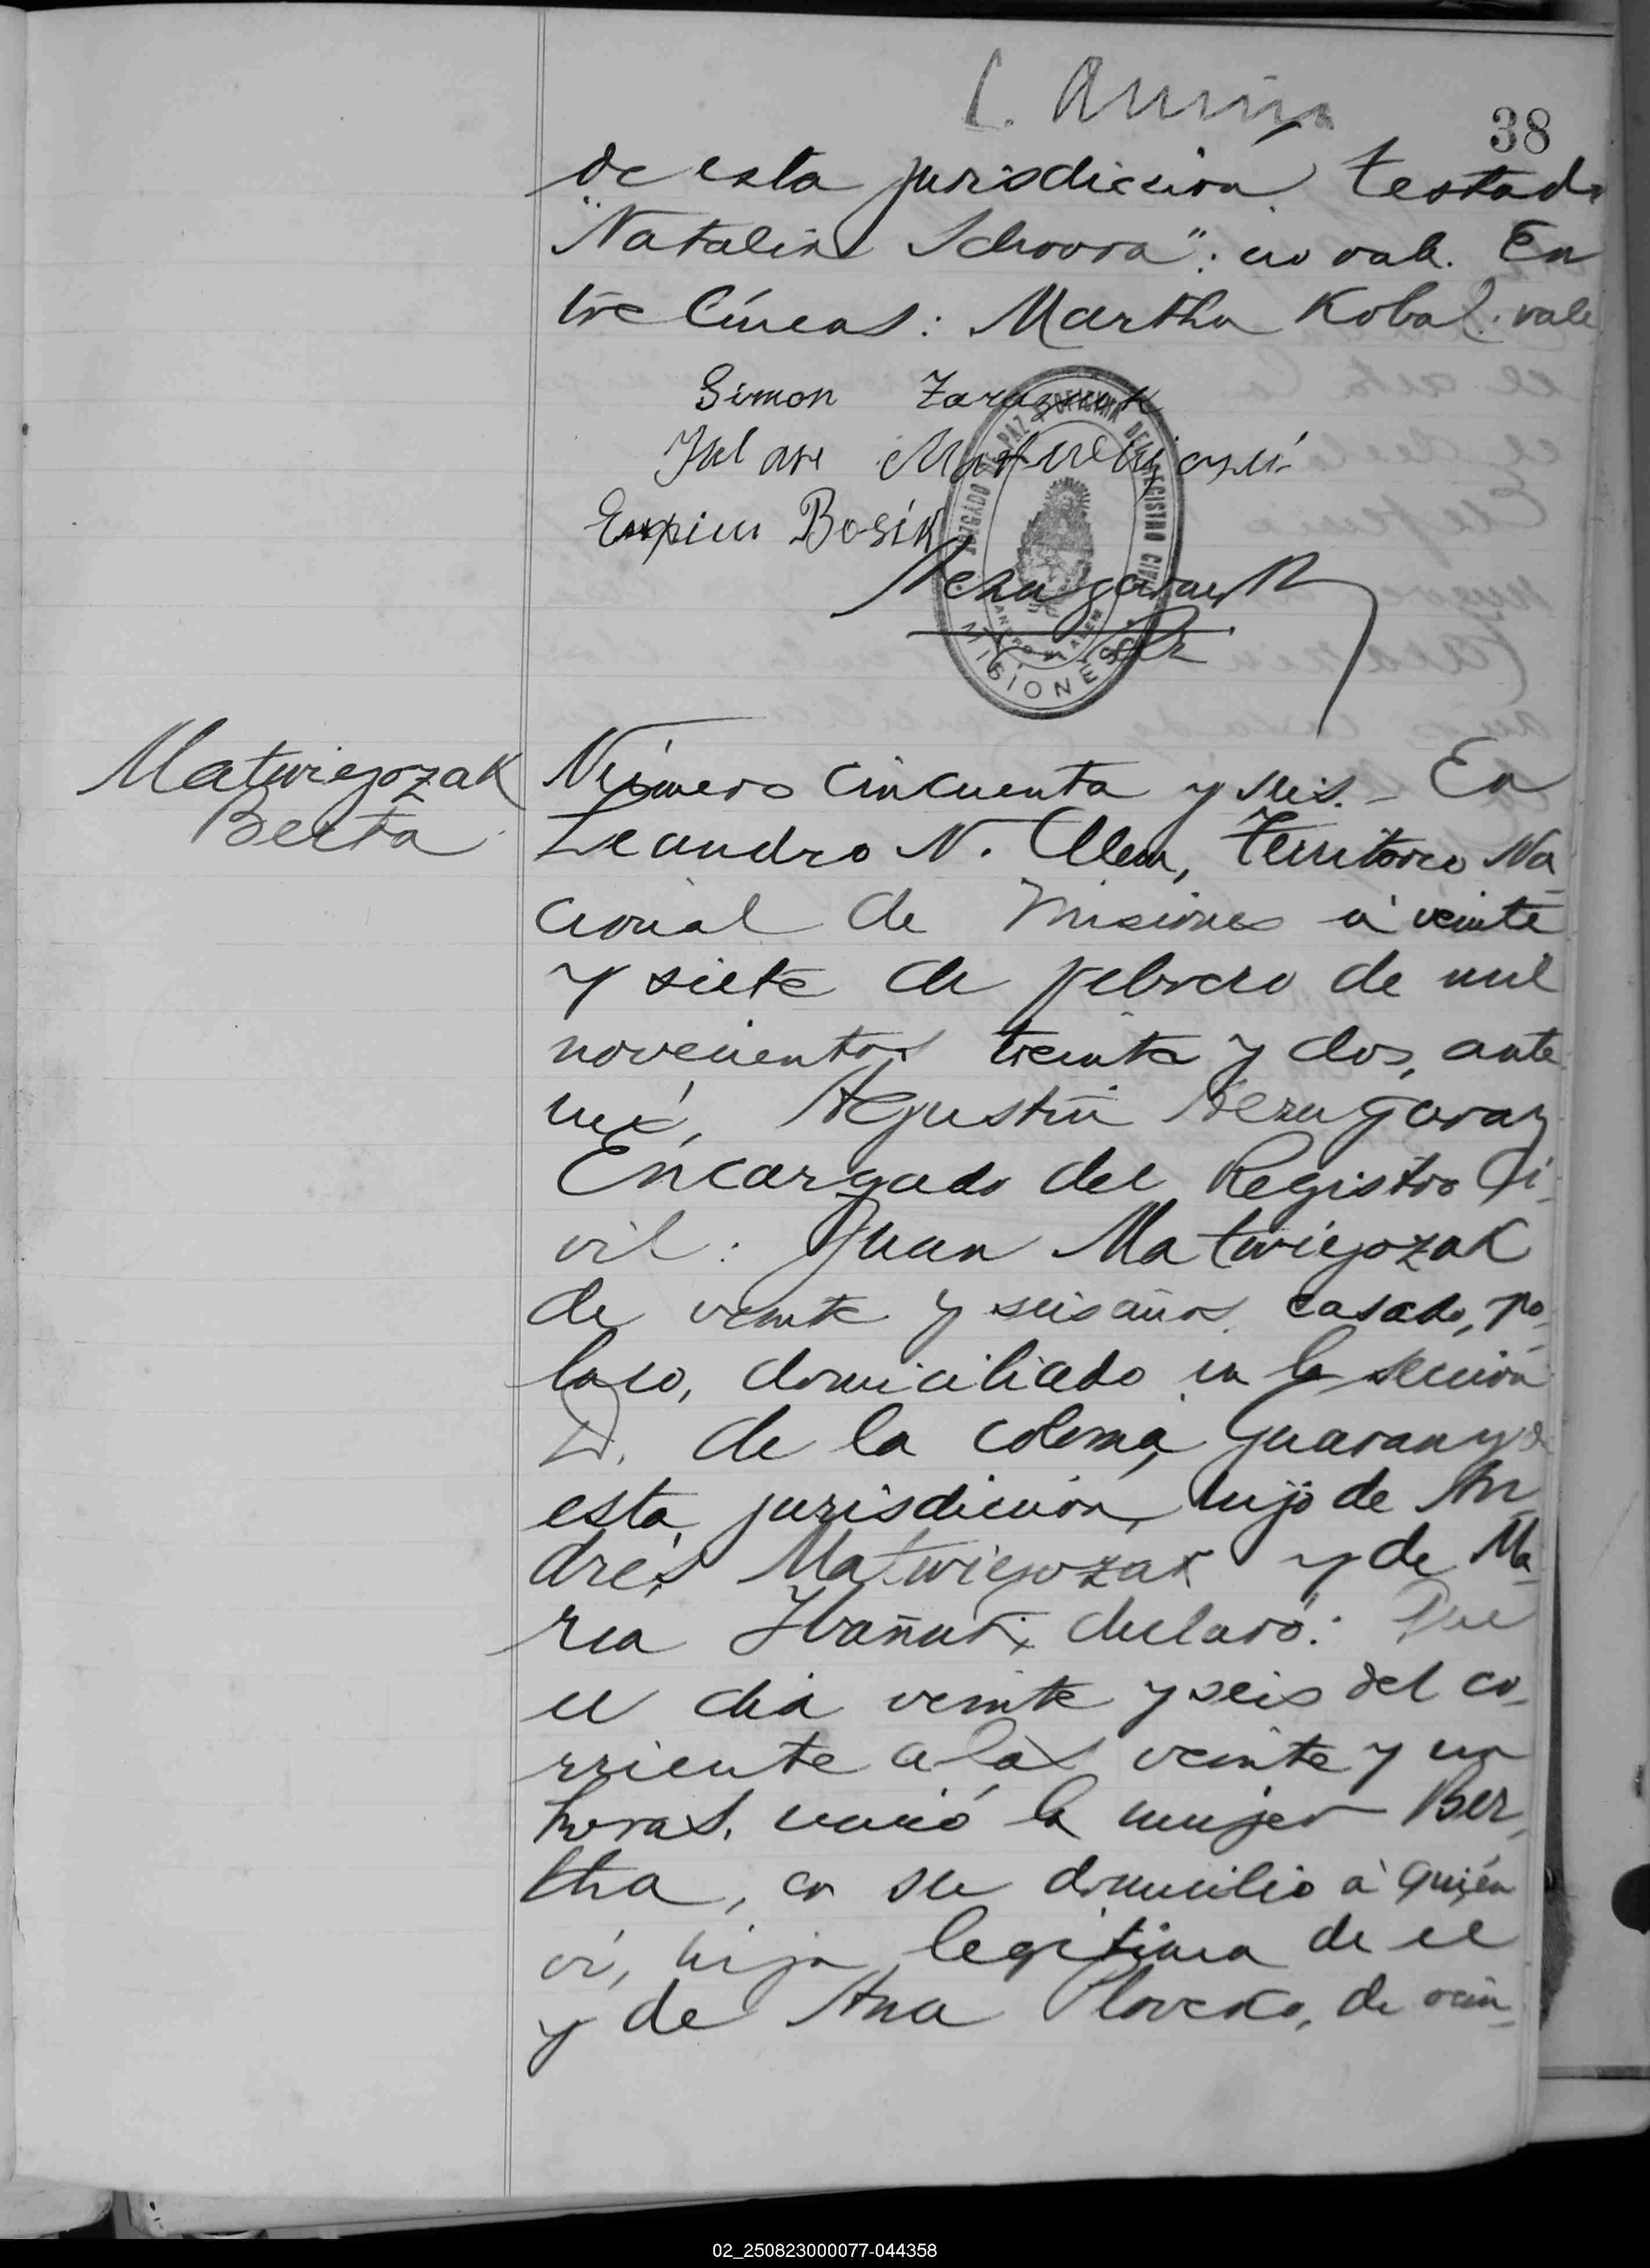 38
de esta jurisdiccion testado
"Natalia Schoova": no vale. En
tre líneas: Martha Kobal. vale
Simon
Bosik
JUZGADO DE PAZ Y OFICINA DEL REGISTRO CIVIL
LEANDRO N. ALEM
MISIONES
Matwiejozak
Berta
Número cincuenta y seis.- En
Leandro N. Alem, Territorio Na-
cional de Misiones á veinte
y siete de febrero de mil
novecientos treinta y dos, ante
mí, Agustín Verazgaray
Encargado del Registro Ci-
vil: Juan Matwiejozak
de veinte y seis años, casado, po-
laco, domiciliado en la sección
D. de la colonia Guarany de
esta jurisdiccion, hijo de An-
drés Matwiejozak y de Ma-
ria declaró: Que
el dia veinte y seis del co-
rriente a las veinte y un
horas, nació la mujer Ber-
tha, en su domicilio á quién
ví, hija legitima de el
y de Ana de vein-
02_250823000077-044358